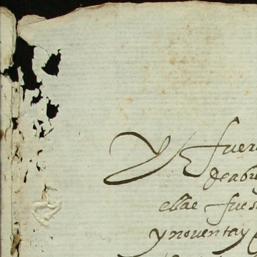 Y fuer
de abr
ellae fues
y noventa y